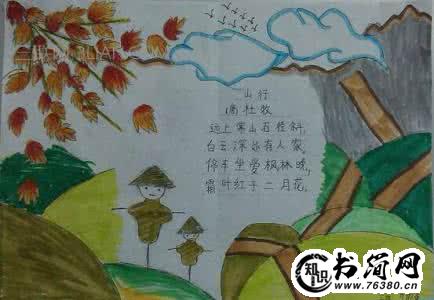 山行
唐杜牧
远上寒山石径斜,
白云深处有人家,
停车坐爱枫林晚,
霜叶红于二月花,
知识
书简网
www.76380.cn